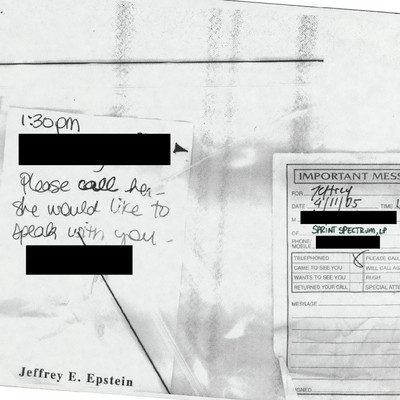 1:30pm
Please call her-
she would like to
speak with you-
Jeffrey E. Epstein
IMPORTANT MESS
FOR Jeffrey
DATE 9/11/05 TIME
M
OF SPRINT SPECTRUM, LP
PHONE
MOBILE
TELEPHONED X PLEASE CALL
CAME TO SEE YOU WILL CALL AGA
WANTS TO SEE YOU RUSH
RETURNED YOUR CALL SPECIAL ATTE
MESSAGE
SIGNED